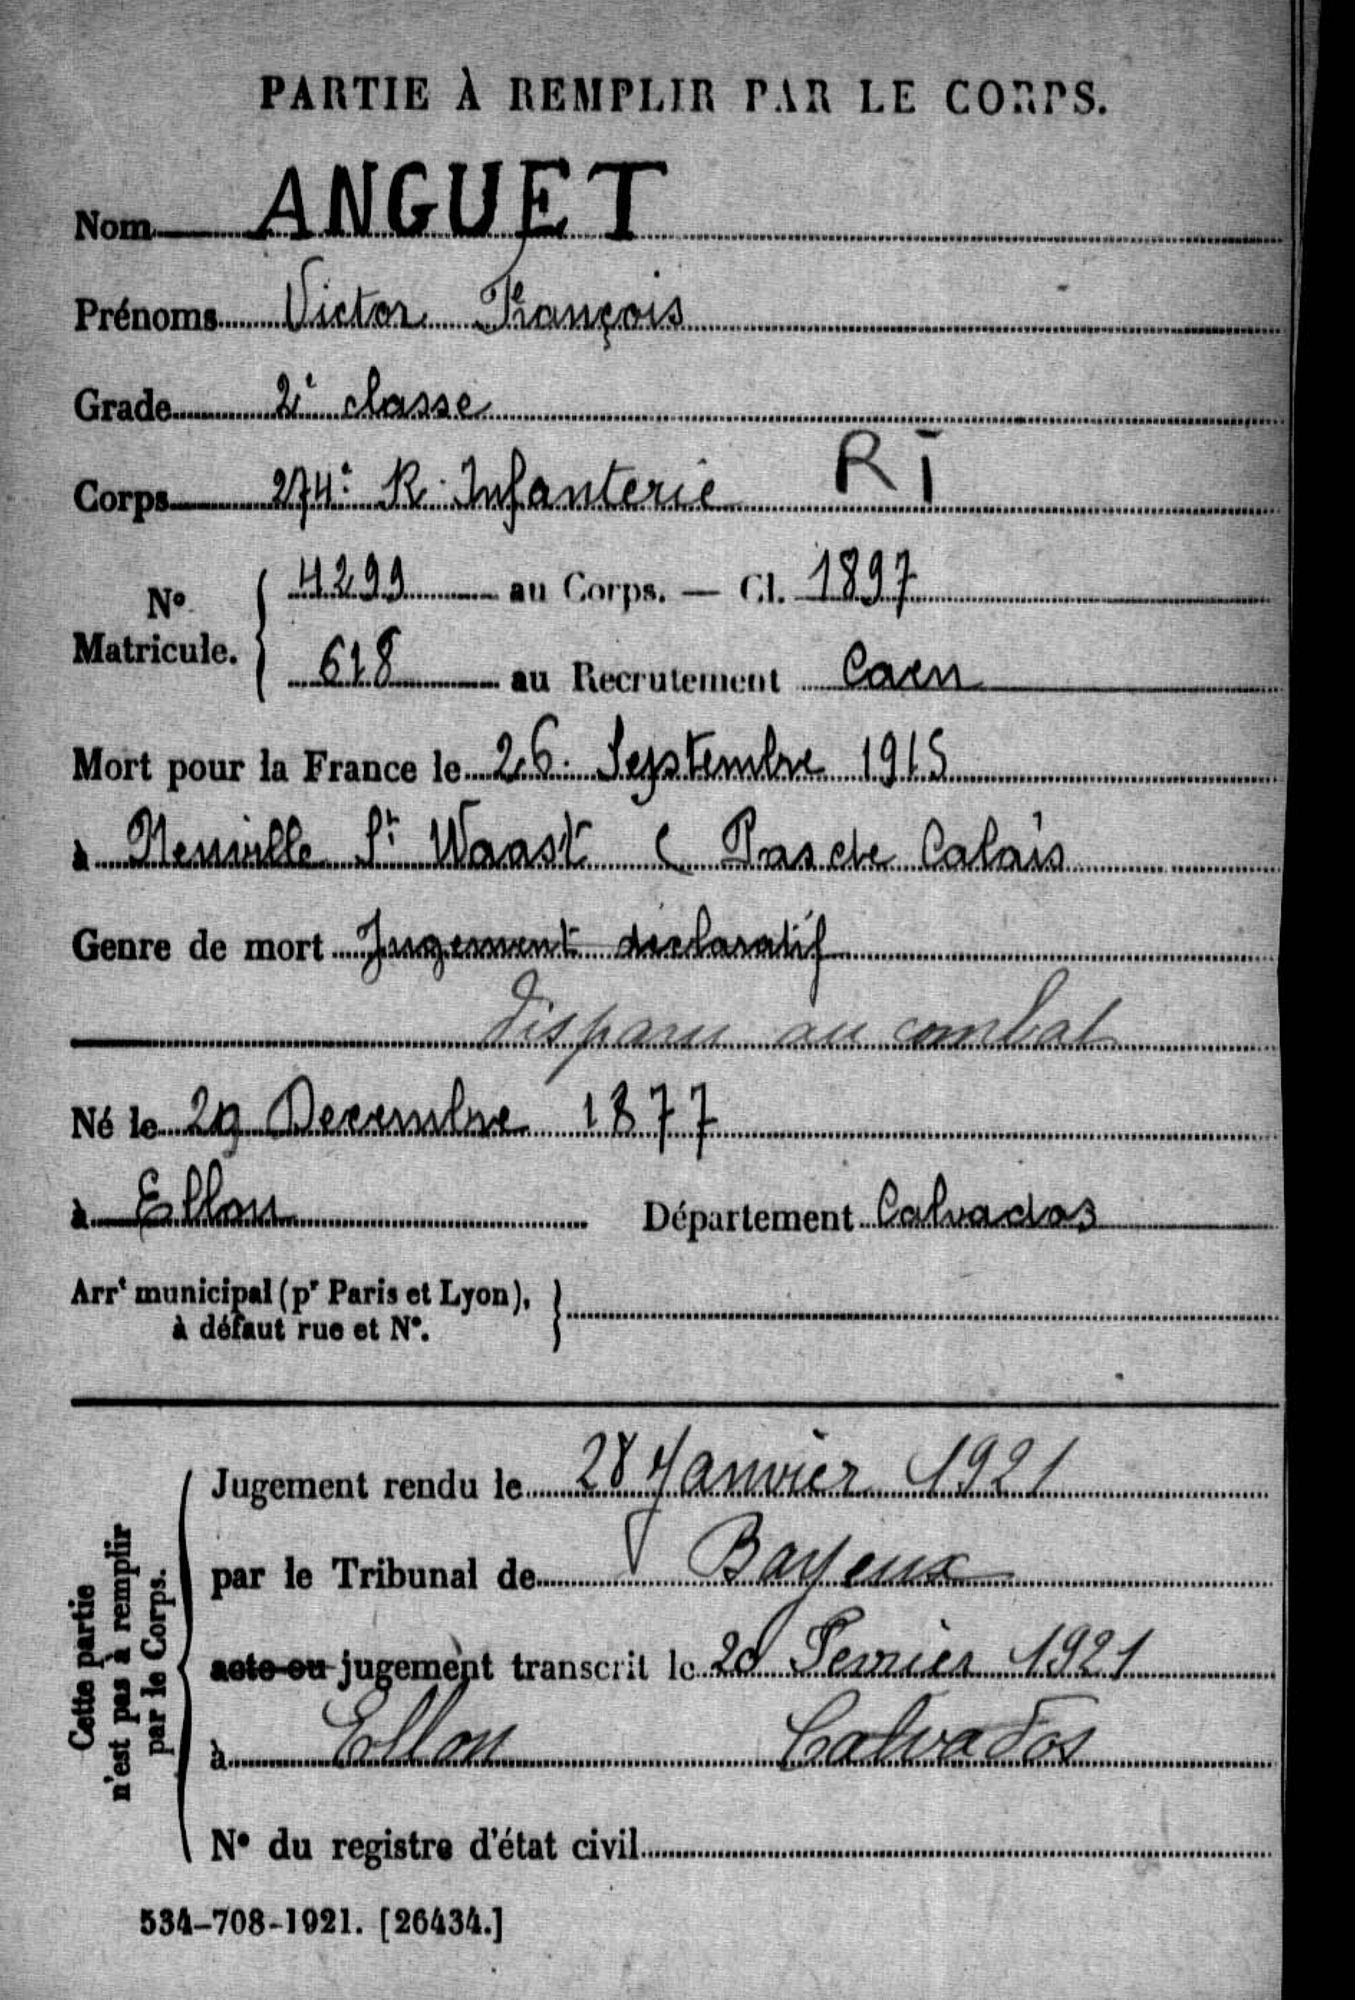 PARTIE À REMPLIR PAR LE CORPS.
Nom ANGUET
Prénoms Victor François
Grade 2e classe
Corps 274e R. Infanterie RI
No Matricule. { 4299 au Corps. — Cl. 1897
618 au Recrutement Caen
Mort pour la France le 26 Septembre 1915
à Neuville St Waast ( Pas de Calais
Genre de mort Jugement declaratif
disparu au combat
Né le 29 Decembre 1877
à Ellon Département Calvados
Arrt municipal (pr Paris et Lyon), }
à défaut rue et No.
Cette partie
n'est pas à remplir
par le Corps.
Jugement rendu le 28 Janvier 1921
par le Tribunal de Bayeux
acte ou jugement transcrit le 20 Fevrier 1921
à Ellon Calvados
No du registre d'état civil
534-708-1921. [26434.]